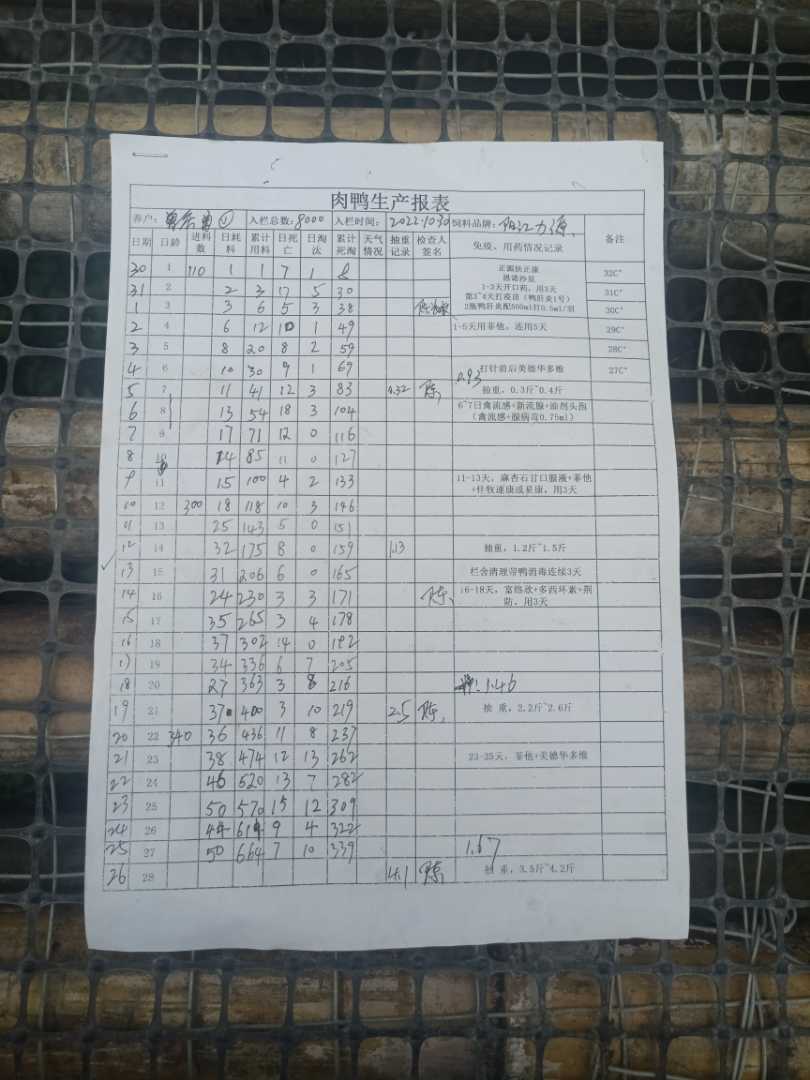 肉鸭生产报表
养户: ① 入栏总数: 8000 入栏时间: 2022.10.30 饲料品牌: 阳江力源 备注
日期 日龄 进料数 日耗料 累计用料 日死亡 日淘汰 累计死淘 天气情况 抽重记录 检查人签名 免疫、用药情况记录
30 1 110 1 1 7 1 8 正源扶正康 32C°
恩诺沙星
31 2 2 3 17 5 30 1-3天开口药，用3天 31C°
第3~4天打疫苗（鸭肝炎1号）
1 3 3 6 5 3 38 2瓶鸭肝炎配500ml打0.5ml/羽 30C°
2 4 6 12 10 1 49 1-5天用菲他，连用5天 29C°
3 5 8 20 8 2 59 28C°
4 6 10 30 9 1 69 0.93 打针前后美德华多维 27C°
5 7 11 41 12 3 83 0.32 陈 抽重，0.3斤~0.4斤
6 8 13 54 18 3 104 6~7日禽流感+新流腺+油剂头孢
（禽流感+腺病毒0.75ml）
7 9 17 71 12 0 116
8 10 14 85 11 0 127
9 11 15 100 4 2 133 11-13天，麻杏石甘口服液+菲他
+什牧速康或星康，用3天
10 12 300 18 118 10 3 146
11 13 25 143 5 0 151
12 14 32 175 8 0 159 1.13 抽重，1.2斤~1.5斤
13 15 31 206 6 0 165 栏舍清理带鸭消毒连续3天
14 16 24 230 3 3 171 陈 16-18天，富络欣+多西环素+荆
防，用3天
15 17 35 265 3 4 178
16 18 37 302 14 0 192
17 19 34 336 6 7 205
18 20 27 363 3 8 216 1.46
19 21 37 400 3 10 219 2.5 陈 抽重，2.2斤~2.6斤
20 22 340 36 436 11 8 237
21 23 38 474 12 13 262 23-25天，菲他+美德华多维
22 24 46 520 13 7 282
23 25 50 570 15 12 309
24 26 44 614 9 4 322
25 27 50 664 7 10 339 1.67
26 28 4.1 陈 抽重，3.5斤~4.2斤